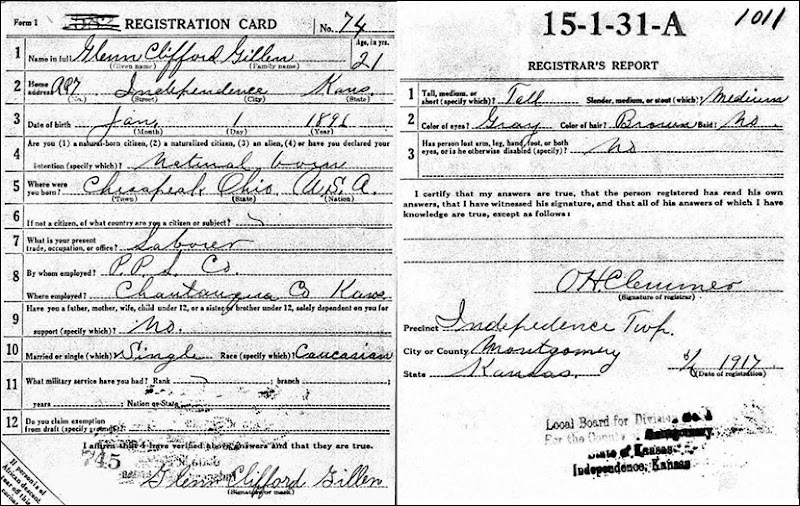 Form 1 REGISTRATION CARD No. 74
1 Name in full Glenn Clifford Gillen Age, in yrs. 21
(Given name) (Family name)
2 Home address Independence Kans
(No.) (Street) (City) (State)
3 Date of birth Jan, 1 1896
(Month) (Day) (Year)
4 Are you (1) a natural-born citizen, (2) a naturalized citizen, (3) an alien, (4) or have you declared your
intention (specify which)? Natural born
5 Where were you born? Chesapeak Ohio U.S.A.
(Town) (State) (Nation)
6 If not a citizen, of what country are you a citizen or subject?
7 What is your present trade, occupation, or office? Laborer
8 By whom employed? P.P.L. Co.
Where employed? Chautauqua Co Kans
9 Have you a father, mother, wife, child under 12, or a sister or brother under 12, solely dependent on you for
support (specify which)? No.
10 Married or single (which)? Single Race (specify which)? Caucasian
11 What military service have you had? Rank ; branch ;
years ; Nation or State
12 Do you claim exemption
from draft (specify grounds)?
I affirm that I have verified above answers and that they are true.
745
Glenn Clifford Gillen
(Signature or mark)
If person is of
African descent,
15-1-31-A 1011
REGISTRAR'S REPORT
1 Tall, medium, or short (specify which)? Tall Slender, medium, or stout (which)? Medium
2 Color of eyes? Gray Color of hair? Brown Bald? No.
3 Has person lost arm, leg, hand, foot, or both
eyes, or is he otherwise disabled (specify)? No
I certify that my answers are true, that the person registered has read his own
answers, that I have witnessed his signature, and that all of his answers of which I have
knowledge are true, except as follows:
O H Clemmer
(Signature of registrar)
Precinct Indepedence Twp.
City or County Montgomery
State Kansas 1917
(Date of registration)
Local Board for Division No. 1
For the County Montgomery
State of Kansas
Independence, Kansas